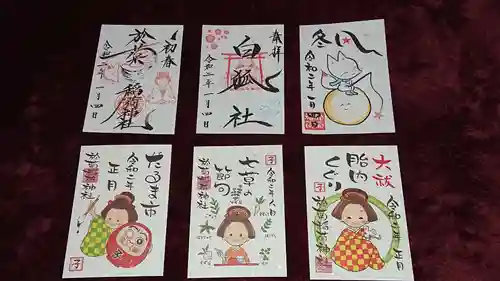 初春
於菊稲荷神社
令和二年一月四日
奉拝
白狐社
令和二年一月四日
冬
令和二年一月四日
だるま市
令和二年
正月
於菊稲荷神社
子
七草の
節句
令和二年人日
於菊稲荷神社
子
大祓
胎内
くぐり
令和二年正月
於菊稲荷神社
子